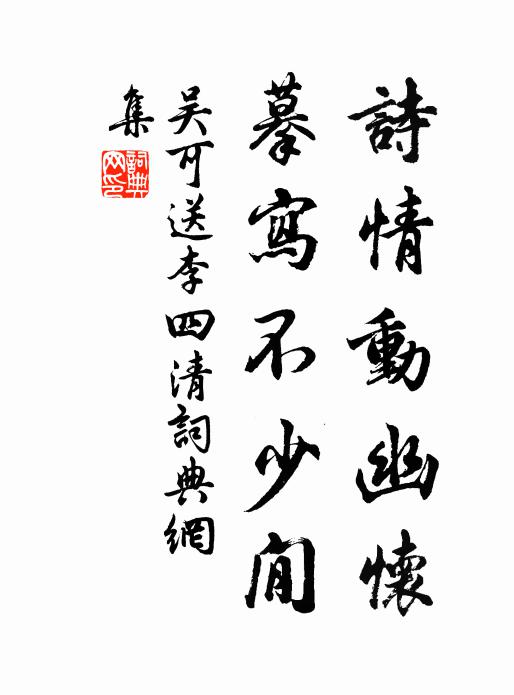 詩情動幽懷
摹寫不少閒
吴可送李四清詞典網
集
詞典
网印